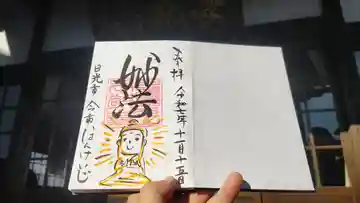 奉拝 令和七年十一月十五日
妙法
日光市 今市 いほんけいじ